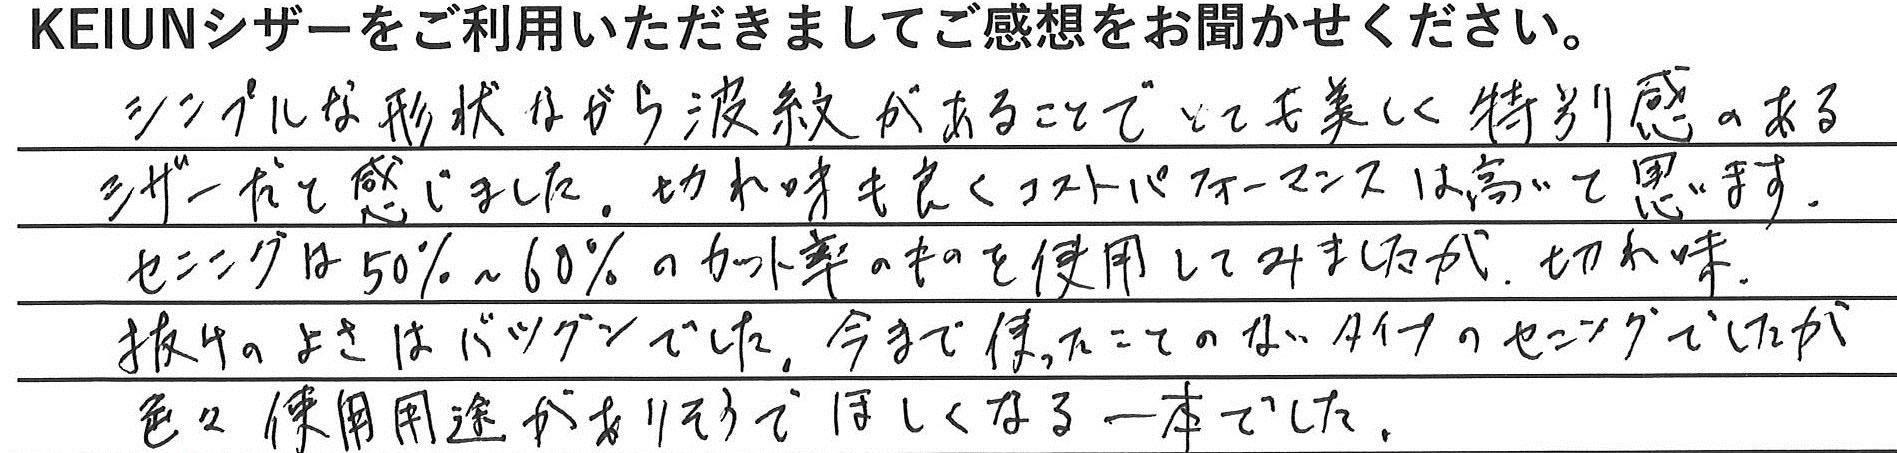 KEIUNシザーをご利用いただきましてご感想をお聞かせください。
シンプルな形状ながら波紋があることでとても美しく特別感のある
シザーだと感じました。切れ味も良くコストパフォーマンスは高いと思います。
セニングは50%~60%のカット率のものを使用してみましたが、切れ味、
抜けのよさはバツグンでした。今まで使ったことのないタイプのセニングでしたが
色々使用用途がありそうでほしくなる一本でした。